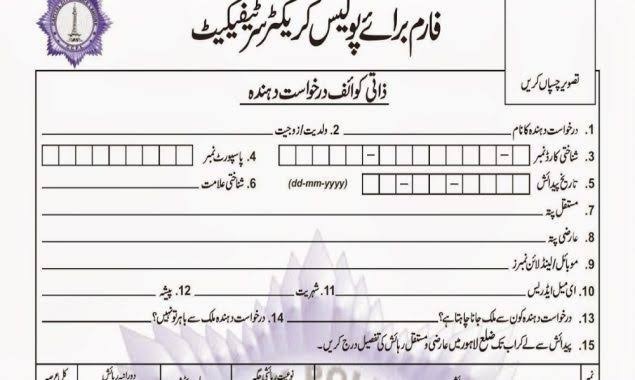 فارم برائے پولیس کریکٹر سرٹیفیکیٹ
تصویر چسپاں کریں
ذاتی کوائف درخواست دہندہ
1. درخواست دہندہ کا نام 2. ولدیت/زوجیت
3. شناختی کارڈ نمبر 4. پاسپورٹ نمبر
5. تاریخ پیدائش (dd-mm-yyyy) 6. شناختی علامت
7. مستقل پتہ
8. عارضی پتہ
9. موبائل/لینڈ لائن نمبرز
10. ای میل ایڈریس 11. شہریت 12. پیشہ
13. درخواست دہندہ کون سے ملک جانا چاہتا ہے؟ 14. درخواست دہندہ ملک سے باہر تو نہیں؟
15. پیدائش سے لے کر اب تک ضلع لاہور میں عارضی مستقل رہائش کی تفصیل درج کریں۔